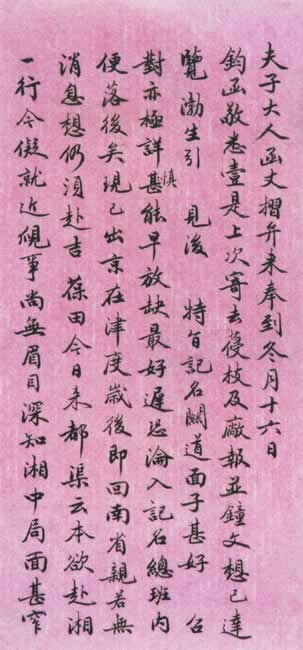 夫子大人函丈摺弁来奉到冬月十六日
鈞函敬悉壹是上次寄去復枝及廠報並鐘文想已達
覽渤生引 見後 特旨記名關道面子甚好 台
對亦極詳慎甚能早放缺最好遲恐淪入記名總班内
便落後矣現已出京在津度歲後即回南省親若無
消息想仍須赴吉葆田今日来都渠云本欲赴湘
一行今儗就近覘事尚無眉目深知湘中局面甚窄